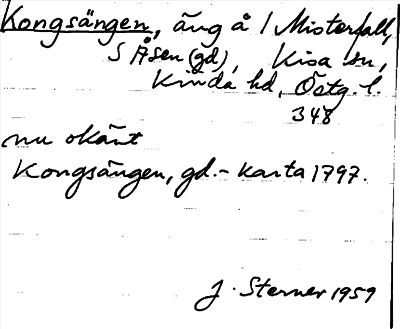 Kongsängen, äng å 1 Misterfall,
S Åsen (gd), Kisa sn,
Kinda hd, Östg. l.
348
nu okänt
Kongsängen, gd. - karta 1797.
J. Sterner 1959